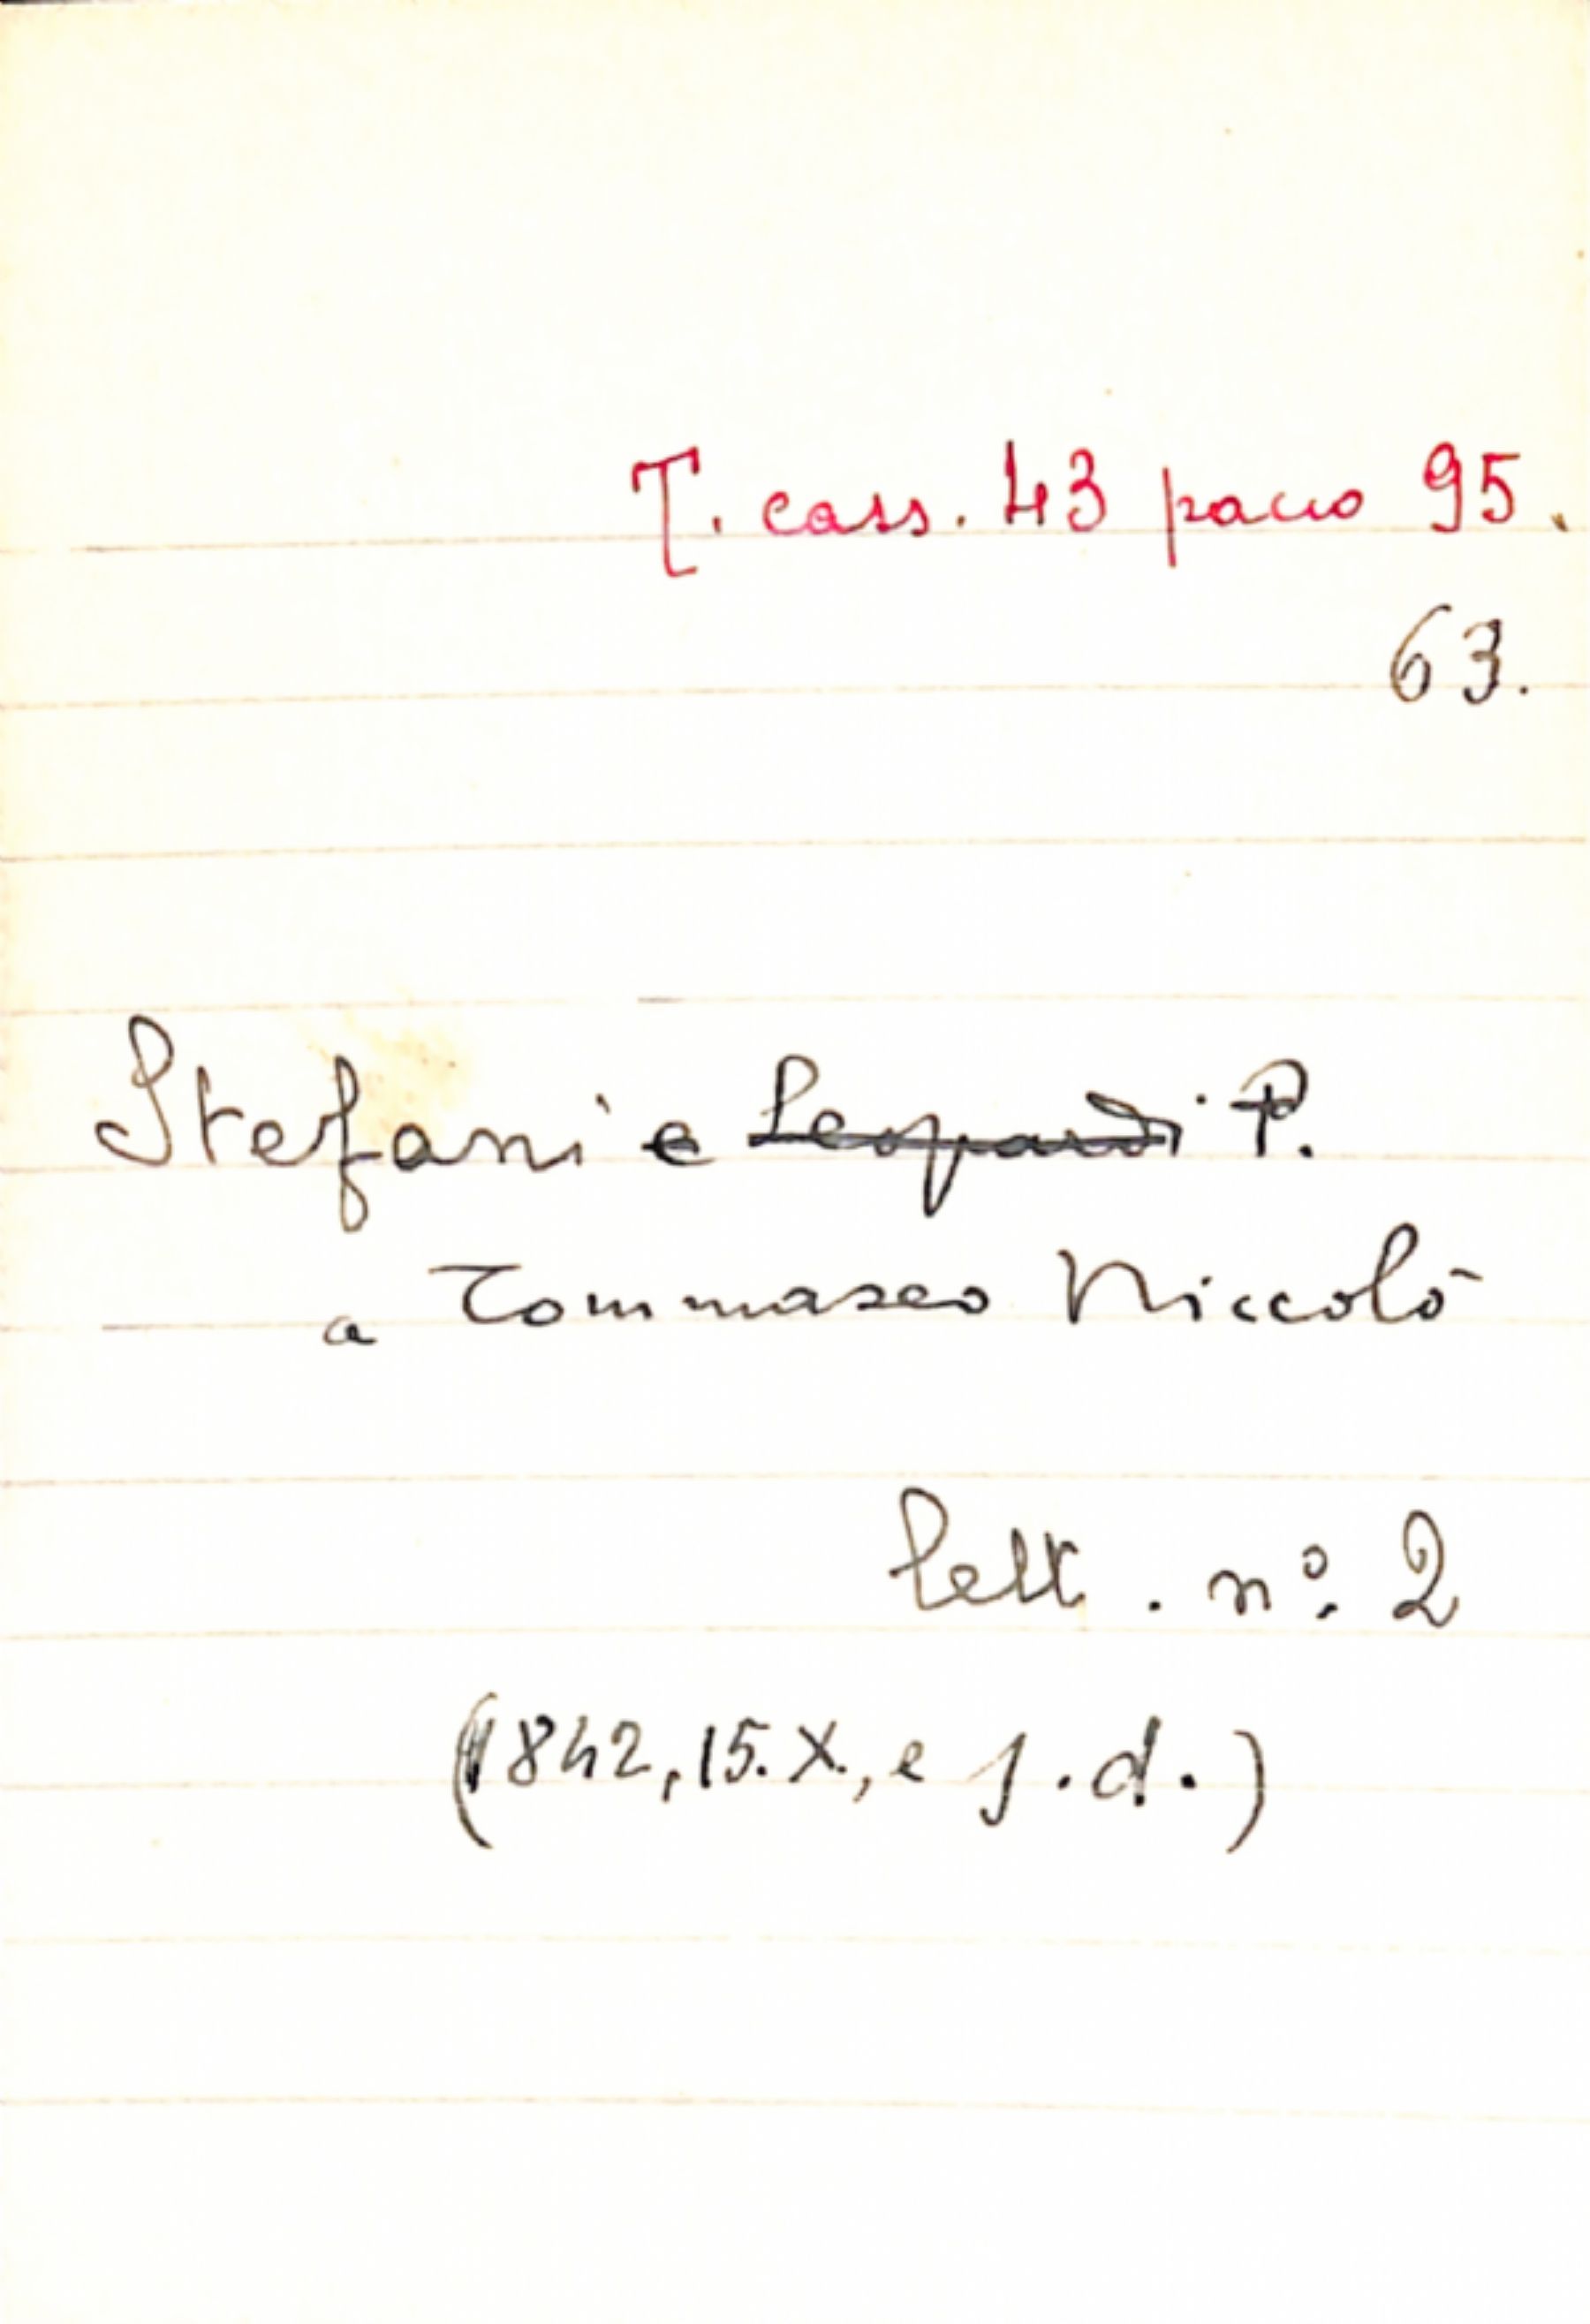 T. cass. 43 pacco 95.
63.
Stefani e Leopardi P.
a Tommaseo Niccolò
lett. nº. 2
(1842, 15.X., e s.d.)